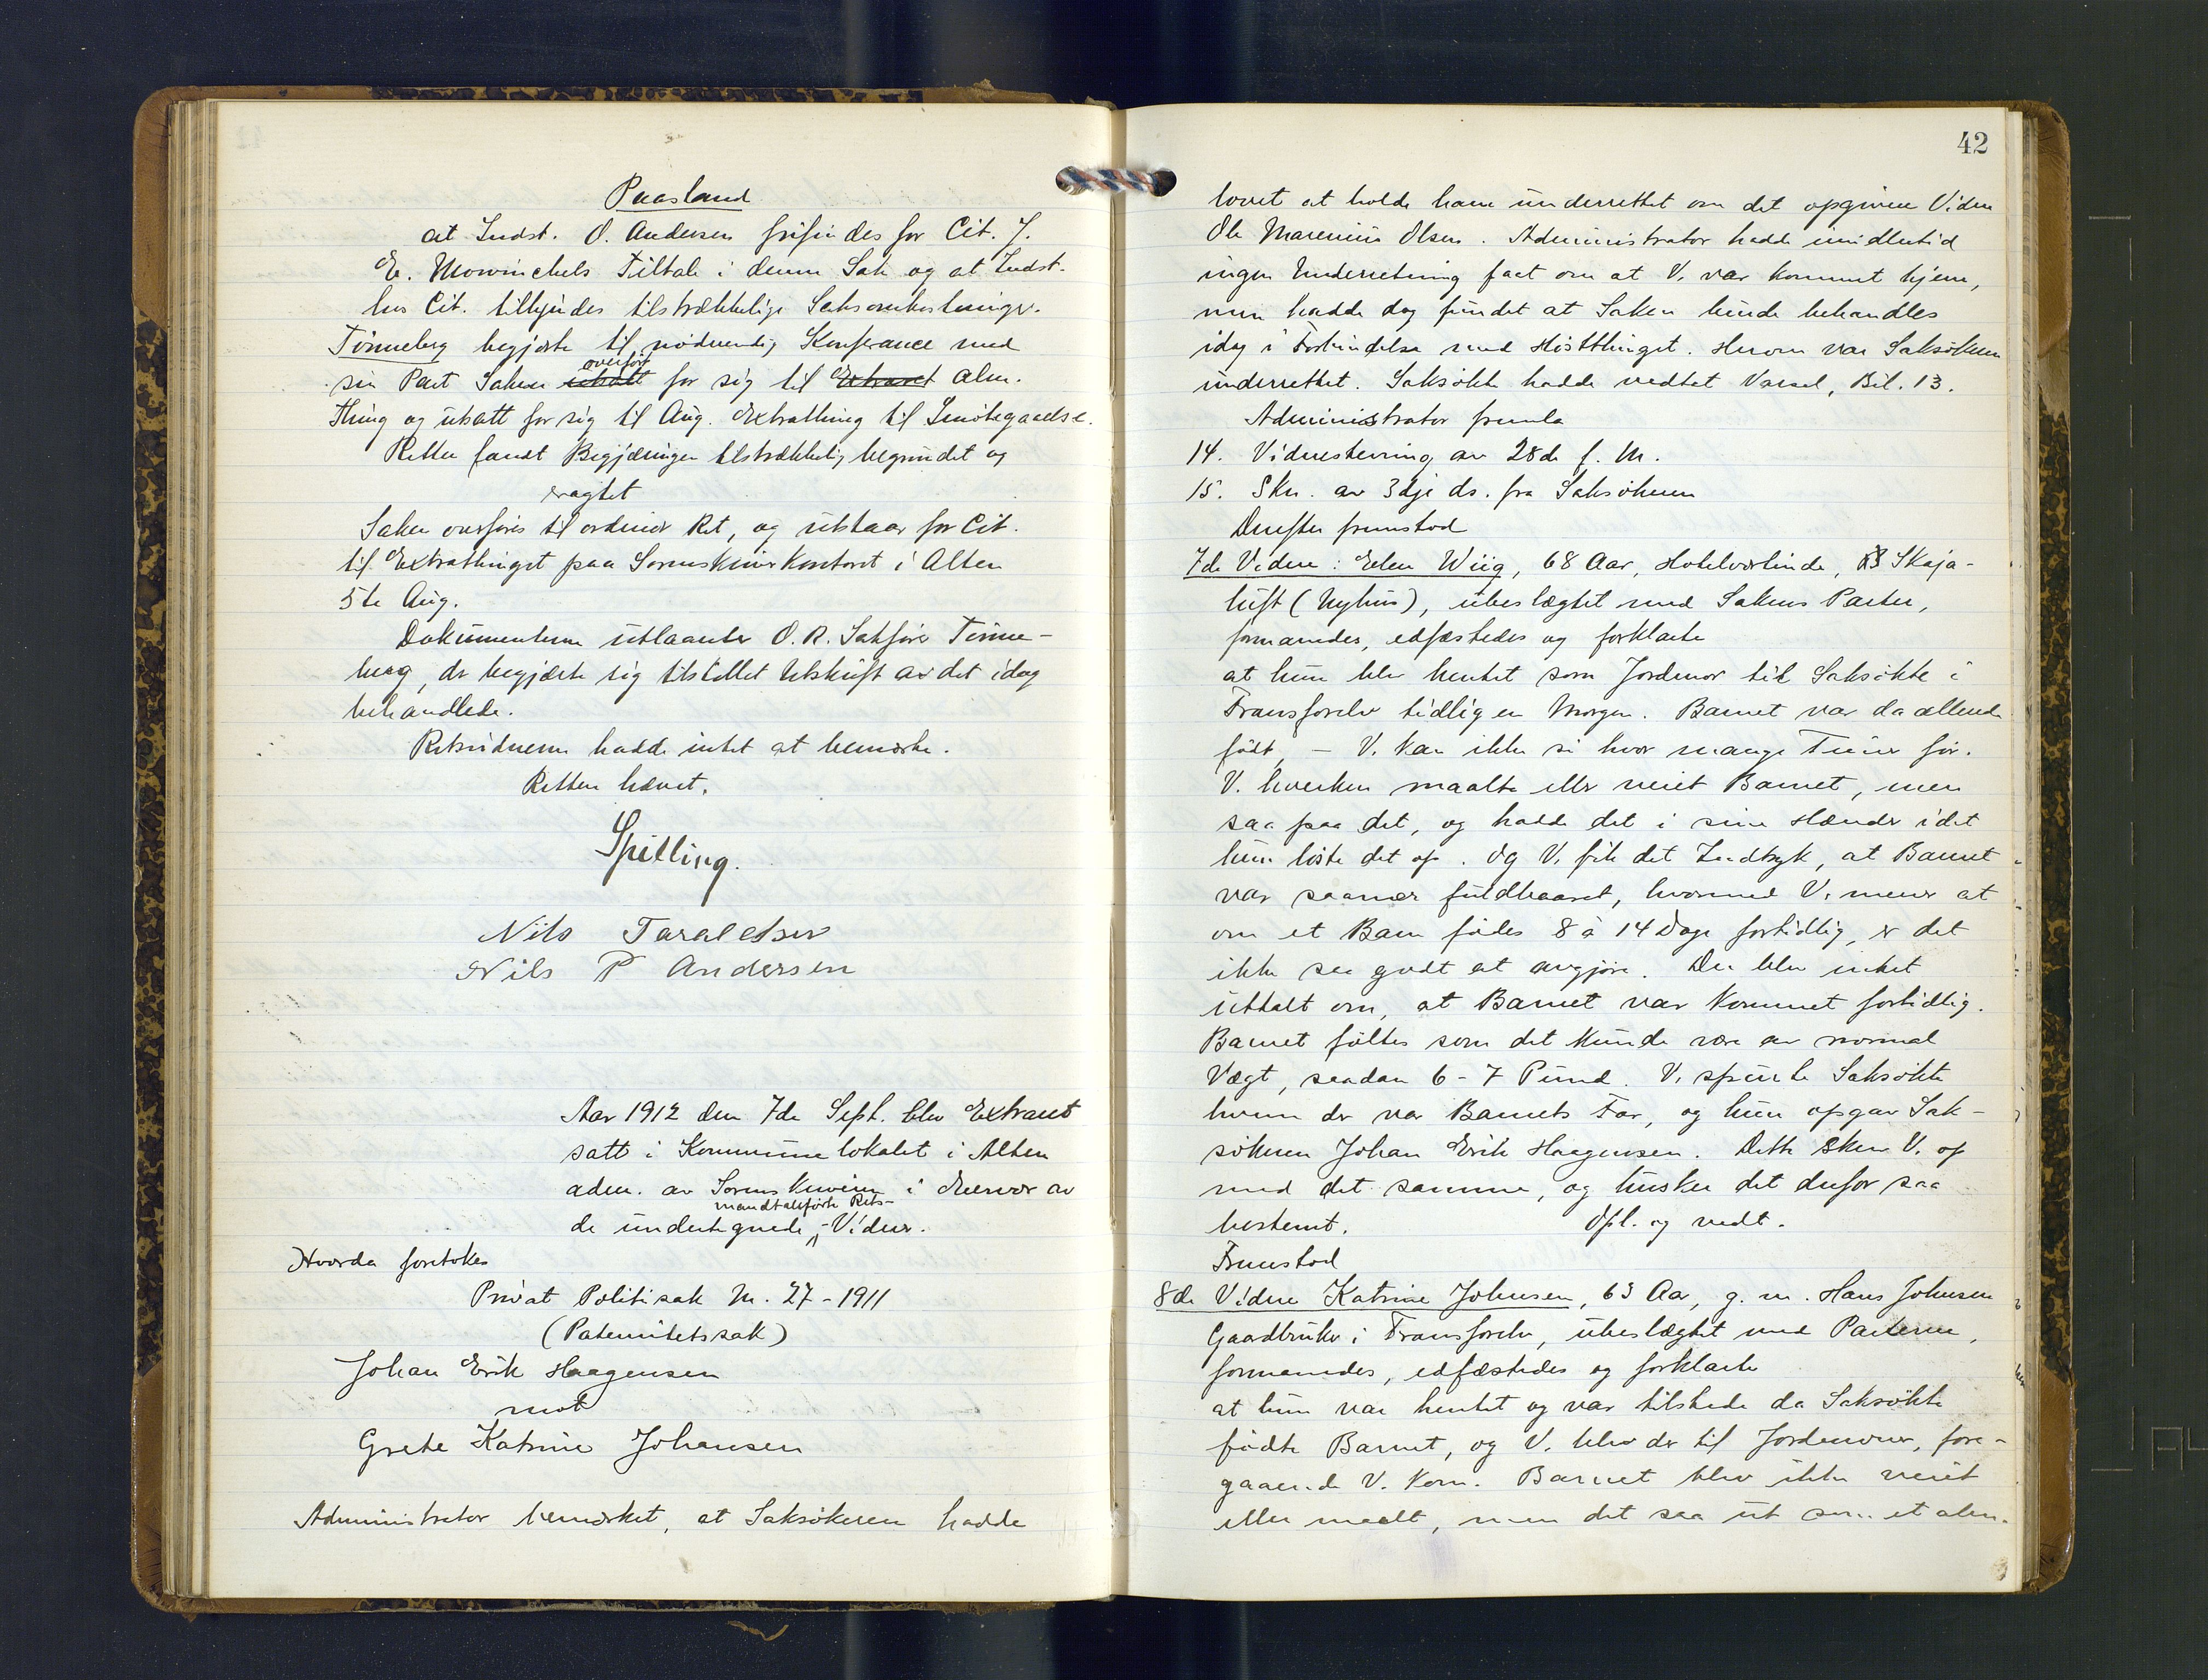 Paastand
at Indst. O. Andersen frifindes for Cit. J.
E. Mowinckels Tiltale i denne Sak og at Indst.
hos Cit. tilkjendes tilstrækkelige Saksomkostninger.
Tønneberg begjærte til nødvendig Konferance med
sin Part Saken utsatt overført for sig til Extraret alm.
Thing og utsatt for sig til Aug. Extrathing til Imøtegaaelse.
Retten fandt Begjæringen tilstrækkelig begrundet og
eragtet
Saken overføres til ordinær Ret, og utstaar for Cit.
til Extrathinget paa Sorenskriverkontoret i Alten
5te Aug.
Dokumenterne utlaantes O. R. Sakfører Tønne-
berg, der begjærte sig tilstillet Utskrift av det idag
behandlede.
Retsvidnerne hadde intet at bemærke.
Retten hævet.
Spilling.
Nils Taraldsen
Nils P Andersen
Aar 1912 den 7de Sept. blev Extraret
satt i Kommunelokalet i Alten
adm. av Sorenskriveren i Nærvær av
de undertegnede mandtalsførte Rets-Vidner.
Hvorda foretokes
Privat Politisak Nr. 27 - 1911
(Paternitetssak)
Johan Erik Haagensen
mot
Grete Katrine Johansen
Administrator bemærket, at Saksøkeren hadde
42
lovet at holde ham underrettet om det opgivne Vidne
Ole Marenius Olsen. Administrator hadde imidlertid
ingen Underretning faat om at V. var kommet hjem,
men hadde dog fundet at Saken kunde behandles
idag i Forbindelse med Høstthinget. Herom var Saksøkeren
underrettet. Saksøkte hadde vedtat Varsel, Bil. 13.
Administrator fremla
14. Vidnestevning av 28de f. M.
15. Skr. av 3dje ds. fra Saksøkeren
Derefter fremstod
7de Vidne: Elen Wiig, 68 Aar, Hotelværtinde, Skaja-
luft (Nyhus), ubeslægtet med Sakens Parter,
formanedes, edfæstedes og forklarte
at hun blev hentet som Jordmor til Saksøkte i
Transforelv tidlig en Morgen. Barnet var da allerede
født, - V. kan ikke si hvor mange Timer før.
V. hverken maalte eller veiet Barnet, men
saa paa det, og hadde det i sine Hænder idet
hun løste det op. Og V. fik det Indtryk, at Barnet
var saanær fuldbaaret, hvormed V. mener at
om et Barn fødes 8 à 14 Dage fortidlig, er det
ikke saa godt at avgjøre. Der blev intet
uttalt om, at Barnet var kommet fortidlig.
Barnet føltes som det kunde være av normal
Vægt, saadan 6 - 7 Pund. V. spurte Saksøkte
hvem der var Barnets Far, og hun opgav Sak-
søkeren Johan Erik Haagensen. Dette skrev V. op
med det samme, og husker det derfor saa
bestemt. Opl. og vedt.
Fremstod
8de Vidne Katrine Johnsen, 63 Aar, g. m. Hans Johnsen
Gaardbruker i Transforelv, ubeslægtet med Parterne,
formanedes, edfæstedes og forklarte
at hun var hentet og var tilstede da Saksøkte
fødte Barnet, og V. blev der til Jordmoren, fore-
gaaende V. kom. Barnet blev ikke veiet
eller maalt, men det saa ut som et alm.